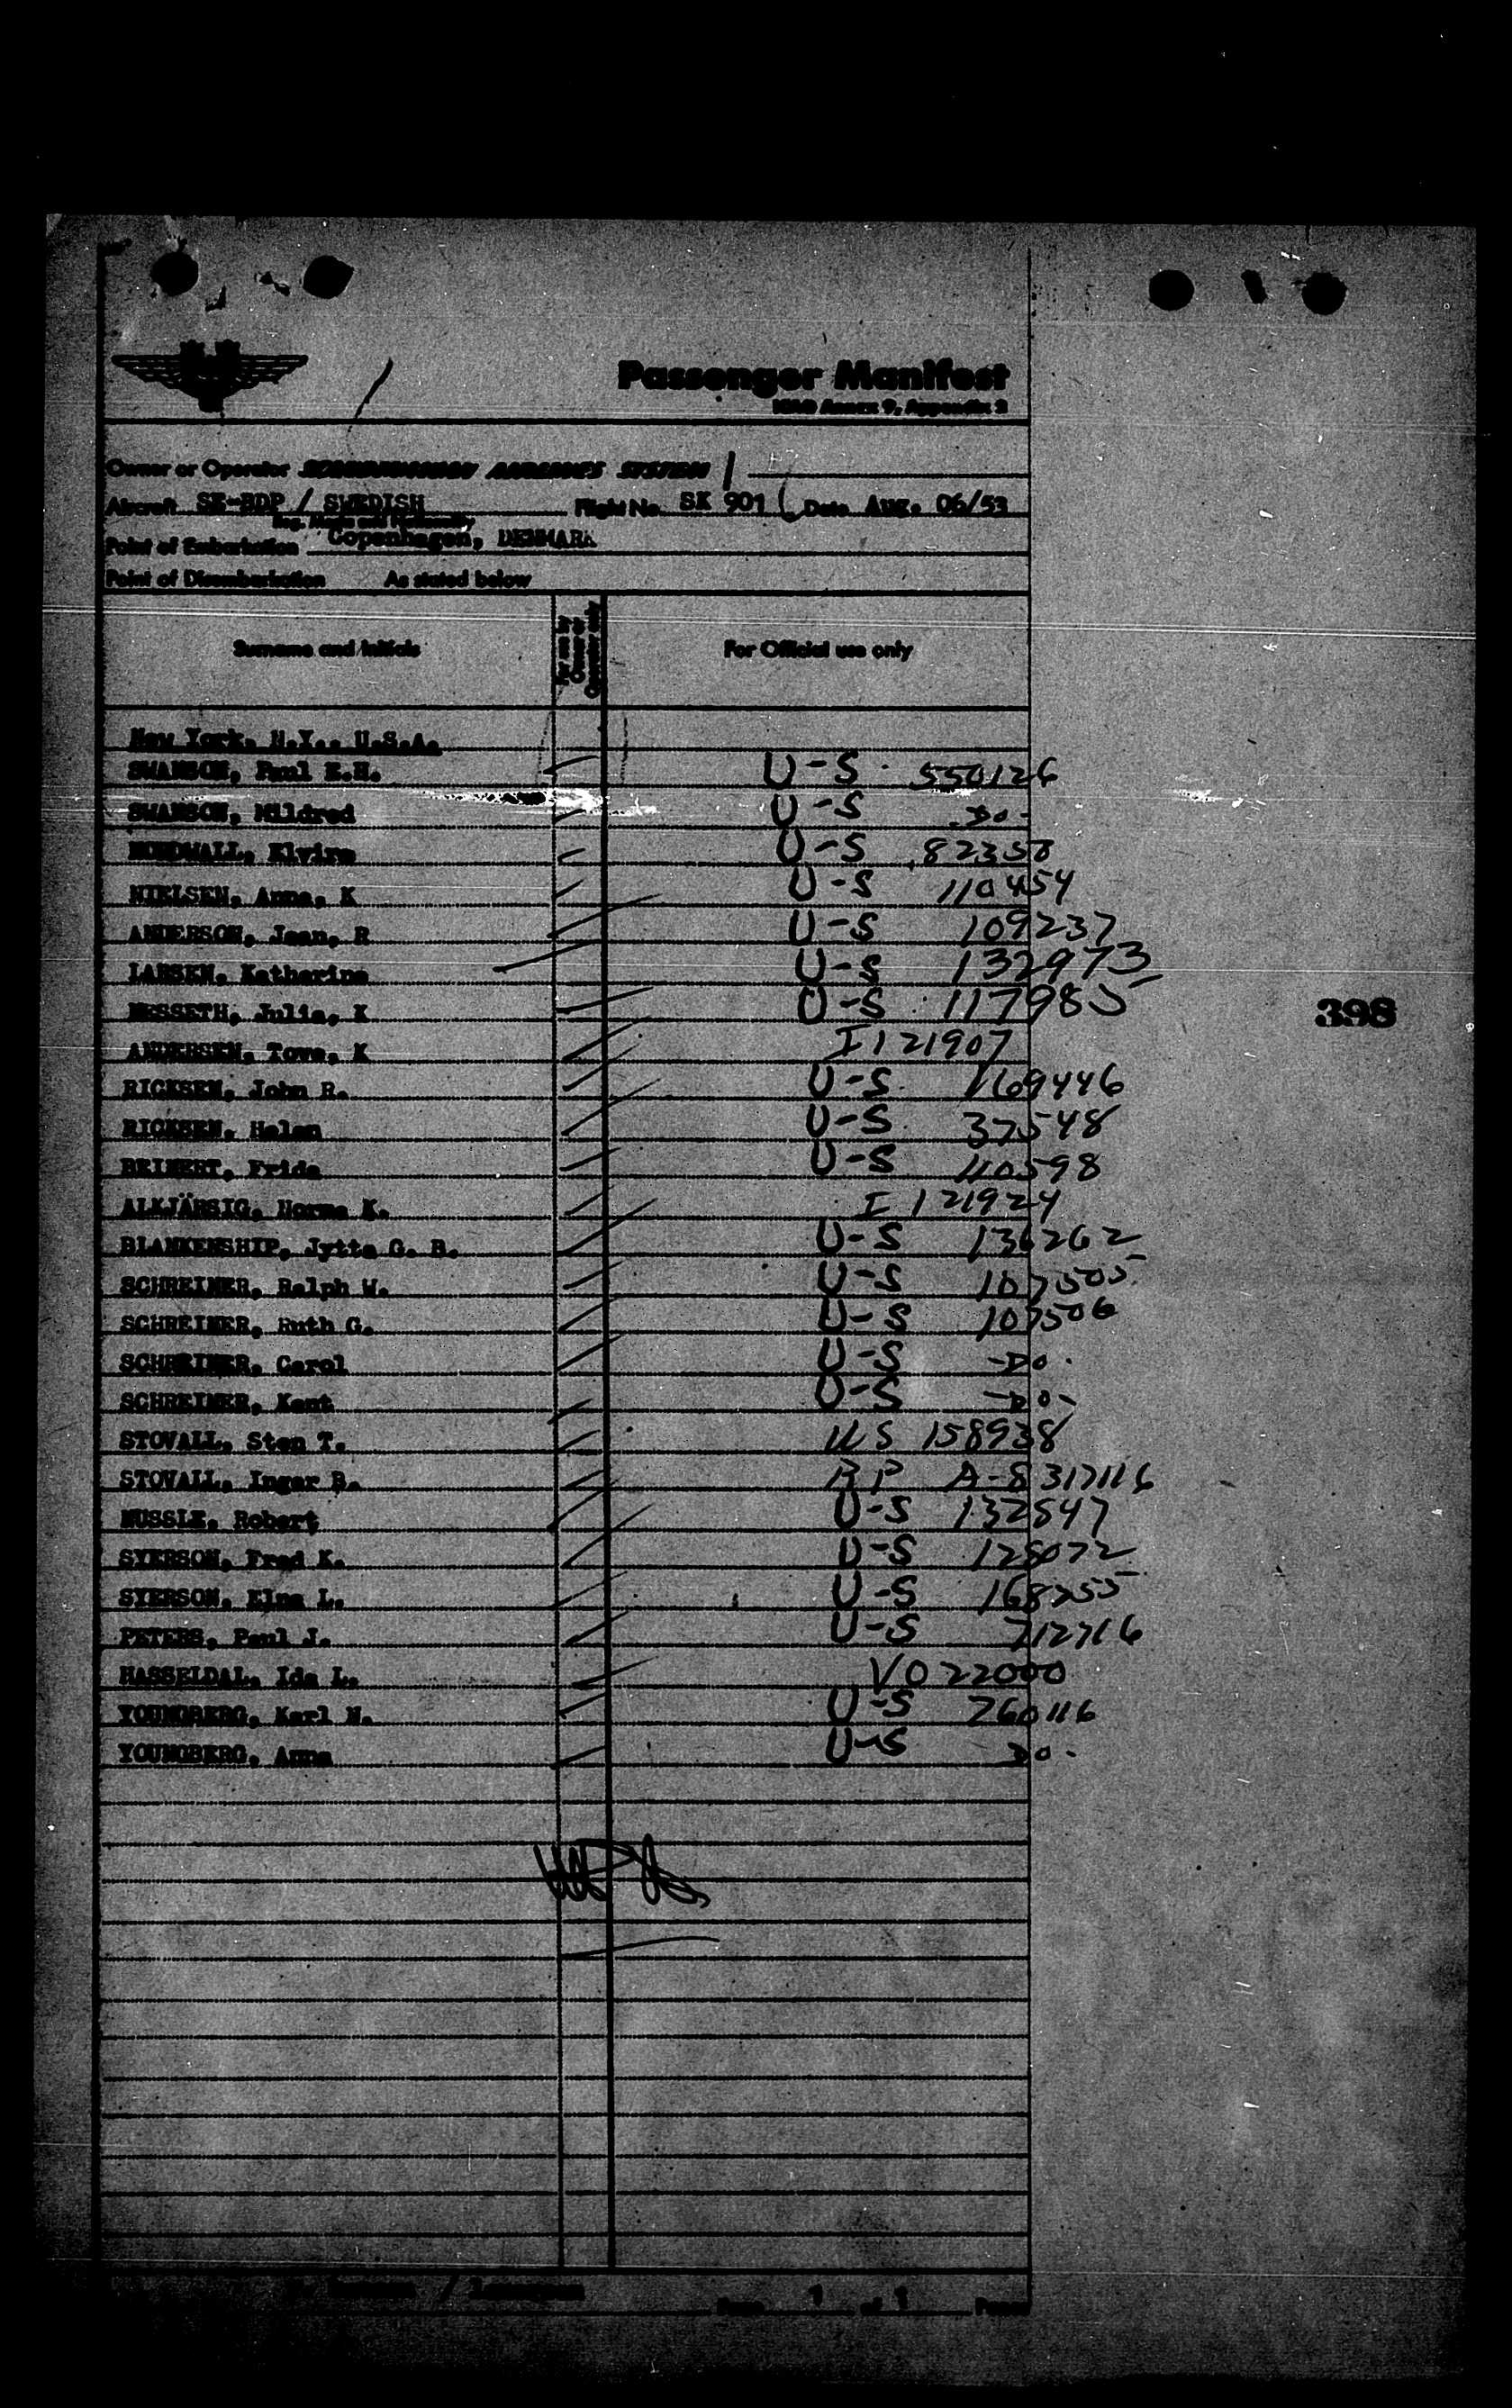 Passenger Manifest
ICAO Annex 9, Appendix 2
Owner or Operator SCANDINAVIAN AIRLINES SYSTEM
Aircraft SE-BDP / SWEDISH Flight No. SK 901 Date Aug. 06/53
Point of Embarkation Copenhagen, DENMARK
Point of Disembarkation As stated below
Surname and Initials For use by Owner or Operator only For Official use only
New York, N.Y., U.S.A.
SWANSON, Paul E.H. U-S 550126
SWANSON, Mildred U-S -Do-
NORDWALL, Elvira U-S 82358
NIELSEN, Anna, K U-S 110454
ANDERSON, Jean, R U-S 109237
LARSEN, Katherine U-S 132973
NESSETH, Julia, K U-S 117985
ANDERSEN, Tove, K I 121907
RICKSEN, John R. U-S 169446
RICKSEN, Helen U-S 37548
REINERT, Frida U-S 110598
ALKJÄRSIG, Norma K. I 121924
BLANKENSHIP, Jytte G. B. U-S 136262
SCHREINER, Ralph W. U-S 107505
SCHREINER, Ruth G. U-S 107506
SCHREINER, Carol U-S -Do-
SCHREINER, Kent U-S -Do-
STOVALL, Sten T. US 158938
STOVALL, Inger B. RP A-8317116
MUSSLE, Robert U-S 132847
SYERSON, Fred K. U-S 128072
SYERSON, Elna L. U-S 168255
PETERS, Paul J. U-S 712716
HASSELDAL, Ida L. VO 22000
YOUNGBERG, Karl N. U-S 760116
YOUNGBERG, Anna U-S Do-
398
Page 1 of 1 Pages